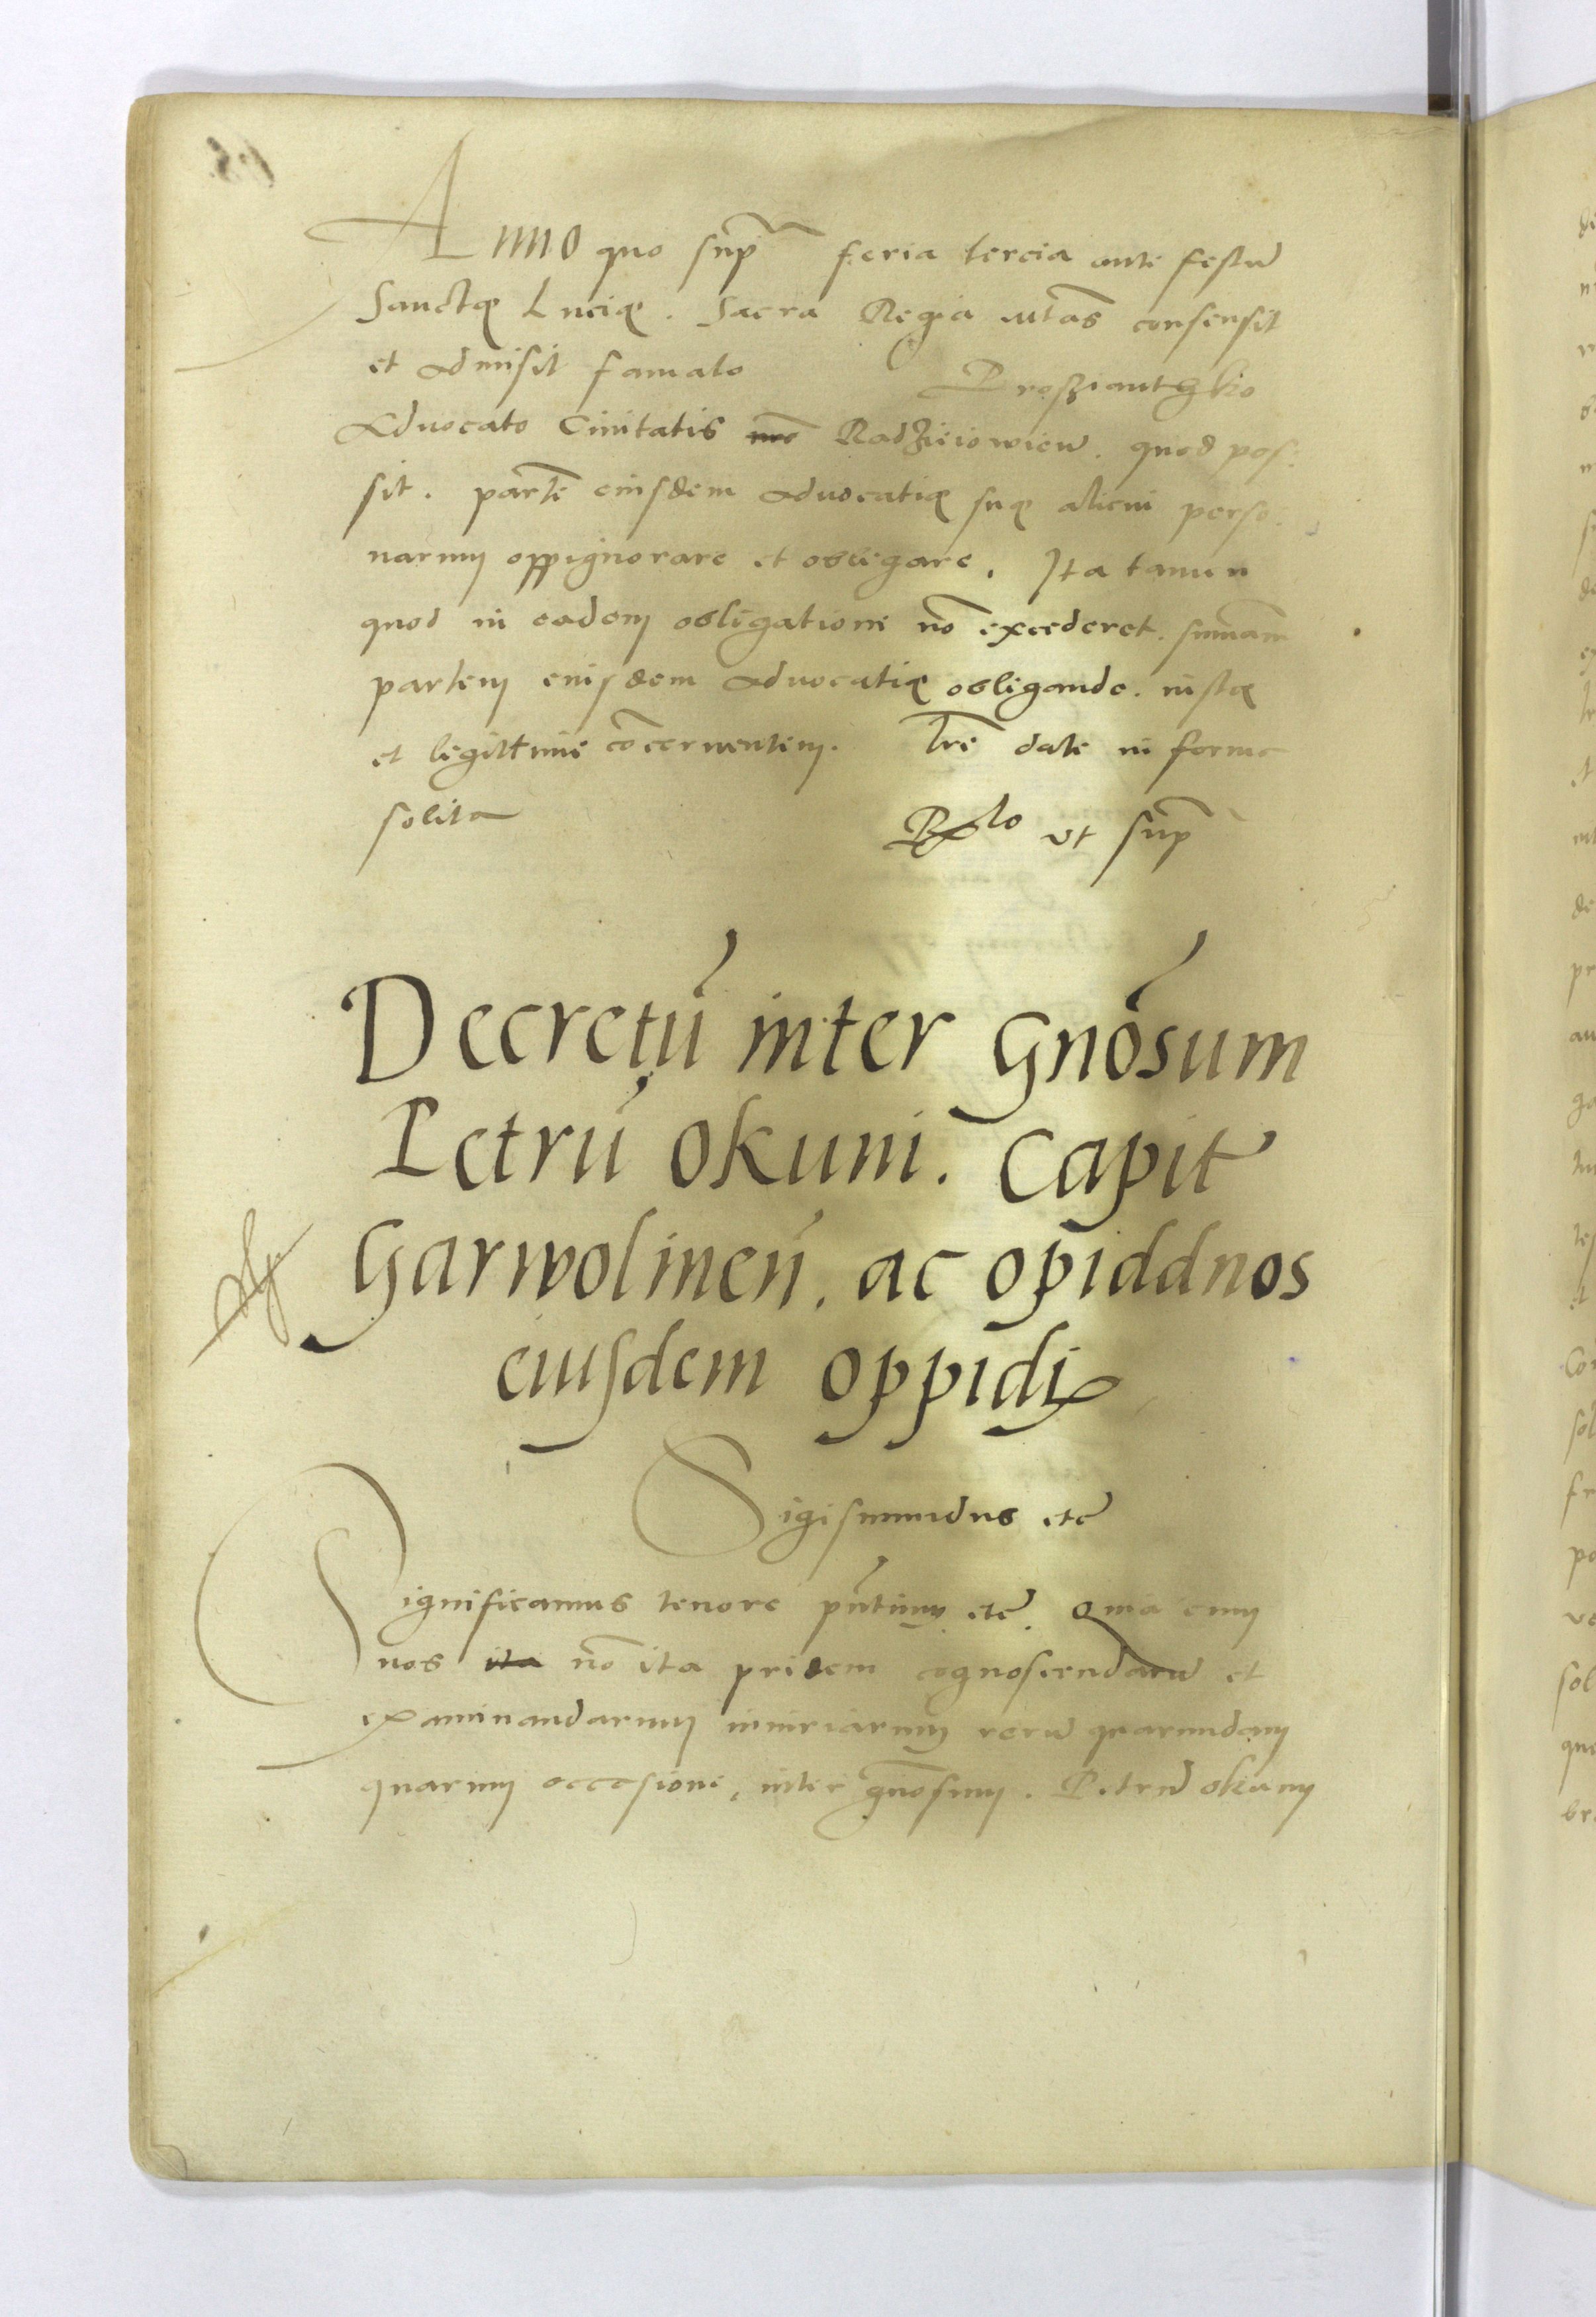 Anno quo sup̃ feria tercia ante festũ
Sanctę Lucię. Sacra Regia Mtãs consensit
et admisit famato Proszianthko
Advocato Civitatis Radzieiowień. quod pos:
sit. partẽ eiusdem advocatię suę alicui perso:
narum oppignorare et obligare. Ita tamen
quod in eadem obligatione nõ excederet. summam
partem eiusdem advocatię obligande. iustę
et legittime cõcernentem. Lrẽ date in forma
solita
Rlo ut sup̃
Decretũ inter Gnõsum
Petrũ Okuni. Capit
Garwolineñ. ac opiddnos
eiusdem oppidi
Sigismundus etc̃
Significamus tenore pñtium etc̃. Quia cum
nos ita nõ ita pridem cognoscendarũ et
examinandarum iniuriarum rerũ quarundam
quarum occasione, inter gnõsum. Petrũ okuny